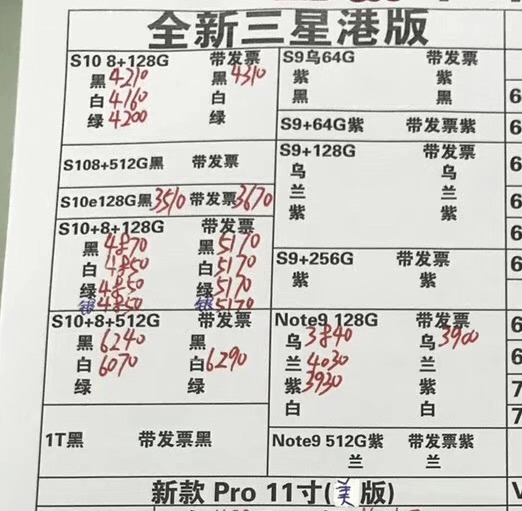 全新三星港版
S10 8+128G 带发票
黑 4210 黑 4310
白 4160 白
绿 4200 绿
S108+512G黑 带发票
S10e128G黑 3510 带发票 3670
S10+8+128G 带发票
黑 4870 黑 5170
白 4850 白 5170
绿 4850 绿 5170
银 4850 银 5170
S10+8+512G 带发票
黑 6240 黑
白 6070 白 6290
绿 绿
1T黑 带发票黑
S9乌64G 带发票
紫 紫
黑 黑
S9+64G紫 带发票紫
S9+128G 带发票
乌 乌
兰 兰
紫 紫
S9+256G 带发票
紫 紫
Note9 128G 带发票
乌 3840 乌 3900
兰 4030 兰
紫 3930 紫
白 白
Note9 512G紫 带发票紫
兰 兰
新款 Pro 11寸(美版)